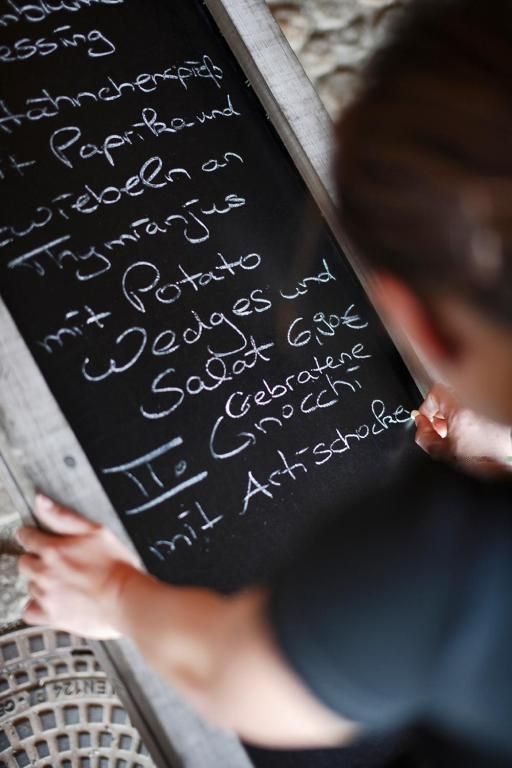 essing
Hähnchenspieß
Paprika und
Zwiebeln an
Thymianjus
mit Potato
Wedges und
Salat 6,90€
II. Gebratene
Gnocchi
mit Artischocke
EN124